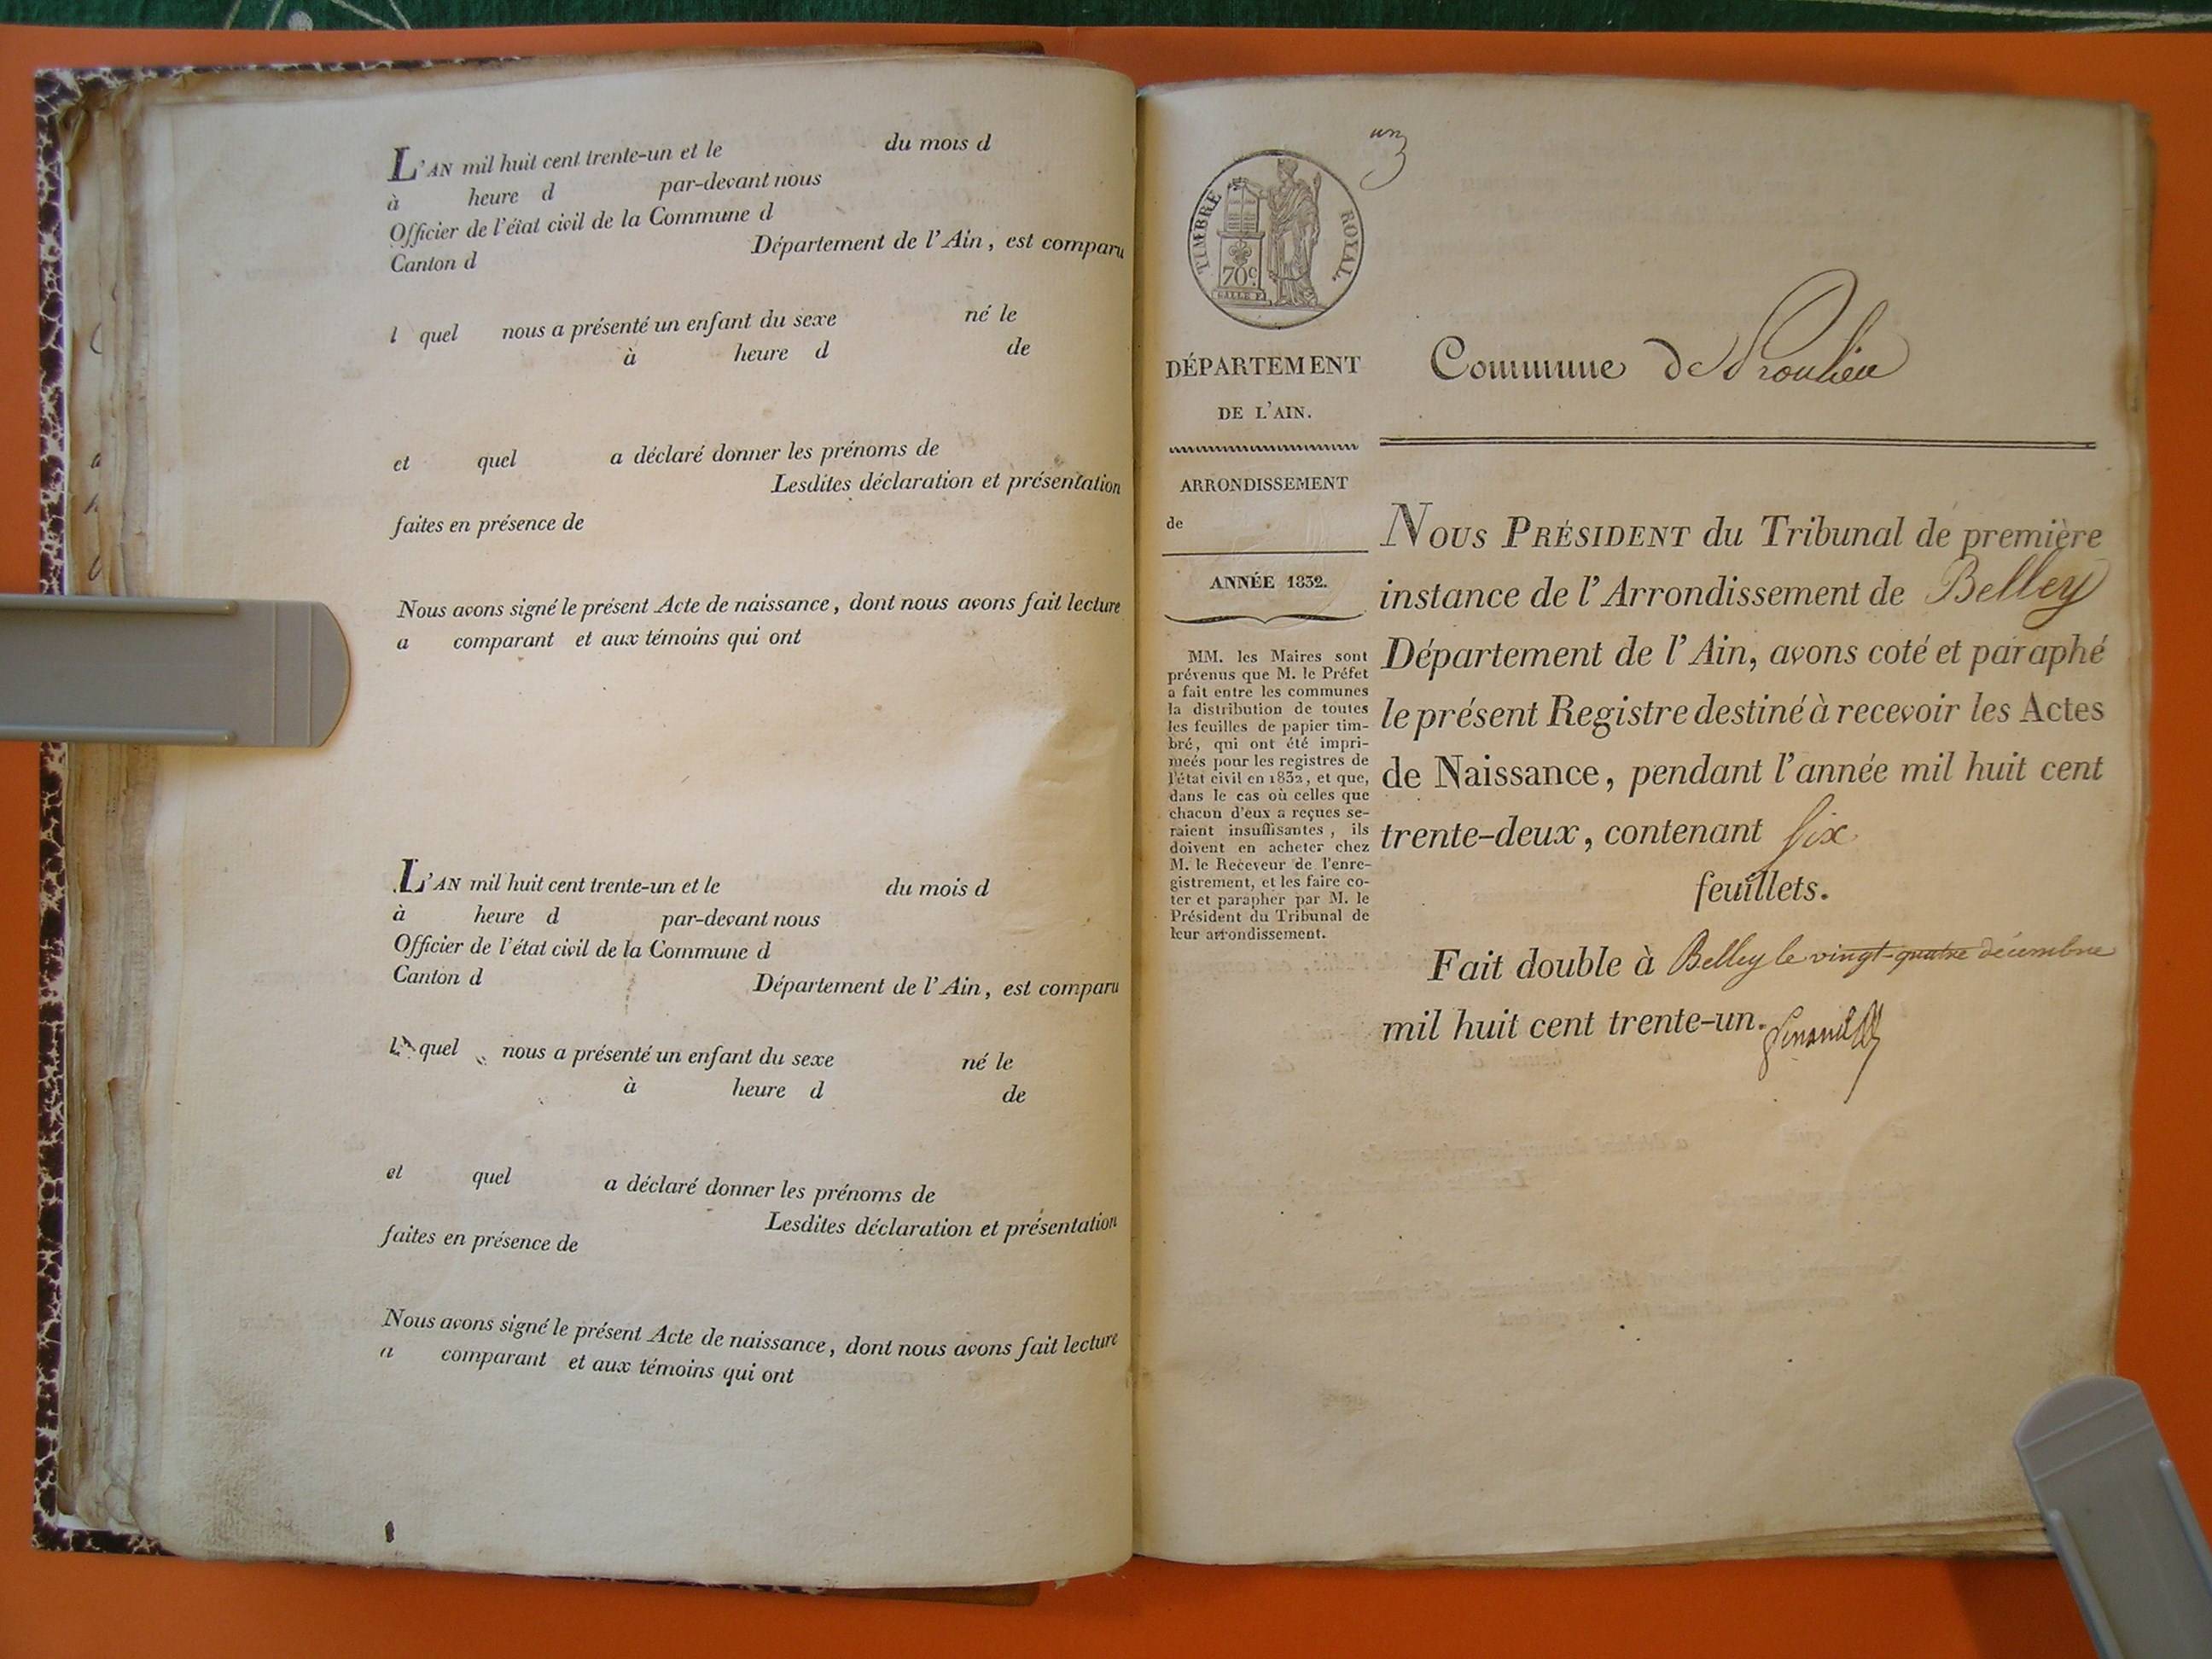 L'AN mil huit cent trente-un et le du mois d
à heure d par-devant nous
Officier de l'état civil de la Commune d
Canton d Département de l'Ain, est comparu
l quel nous a présenté un enfant du sexe né le
à heure d de
et quel a déclaré donner les prénoms de
Lesdites déclaration et présentation
faites en présence de
Nous avons signé le présent Acte de naissance, dont nous avons fait lecture
a comparant et aux témoins qui ont
L'AN mil huit cent trente-un et le du mois d
à heure d par-devant nous
Officier de l'état civil de la Commune d
Canton d Département de l'Ain, est comparu
l quel nous a présenté un enfant du sexe né le
à heure d de
et quel a déclaré donner les prénoms de
Lesdites déclaration et présentation
faites en présence de
Nous avons signé le présent Acte de naissance, dont nous avons fait lecture
a comparant et aux témoins qui ont
un
TIMBRE ROYAL.
70c
DÉPARTEMENT
DE L'AIN.
ARRONDISSEMENT
de
ANNÉE 1832.
MM. les Maires sont
prévenus que M. le Préfet
a fait entre les communes
la distribution de toutes
les feuilles de papier tim-
bré, qui ont été impri-
meés pour les registres de
l'état civil en 1832, et que,
dans le cas où celles que
chacun d'eux a reçues se-
raient insuffisantes, ils
doivent en acheter chez
M. le Receveur de l'enre-
gistrement, et les faire co-
ter et parapher par M. le
Président du Tribunal de
leur arrondissement.
Commune de Proulieu
NOUS PRÉSIDENT du Tribunal de première
instance de l'Arrondissement de Belley
Département de l'Ain, avons coté et paraphé
le présent Registre destiné à recevoir les Actes
de Naissance, pendant l'année mil huit cent
trente-deux, contenant six
feuillets.
Fait double à Belley le vingt-quatre décembre
mil huit cent trente-un.